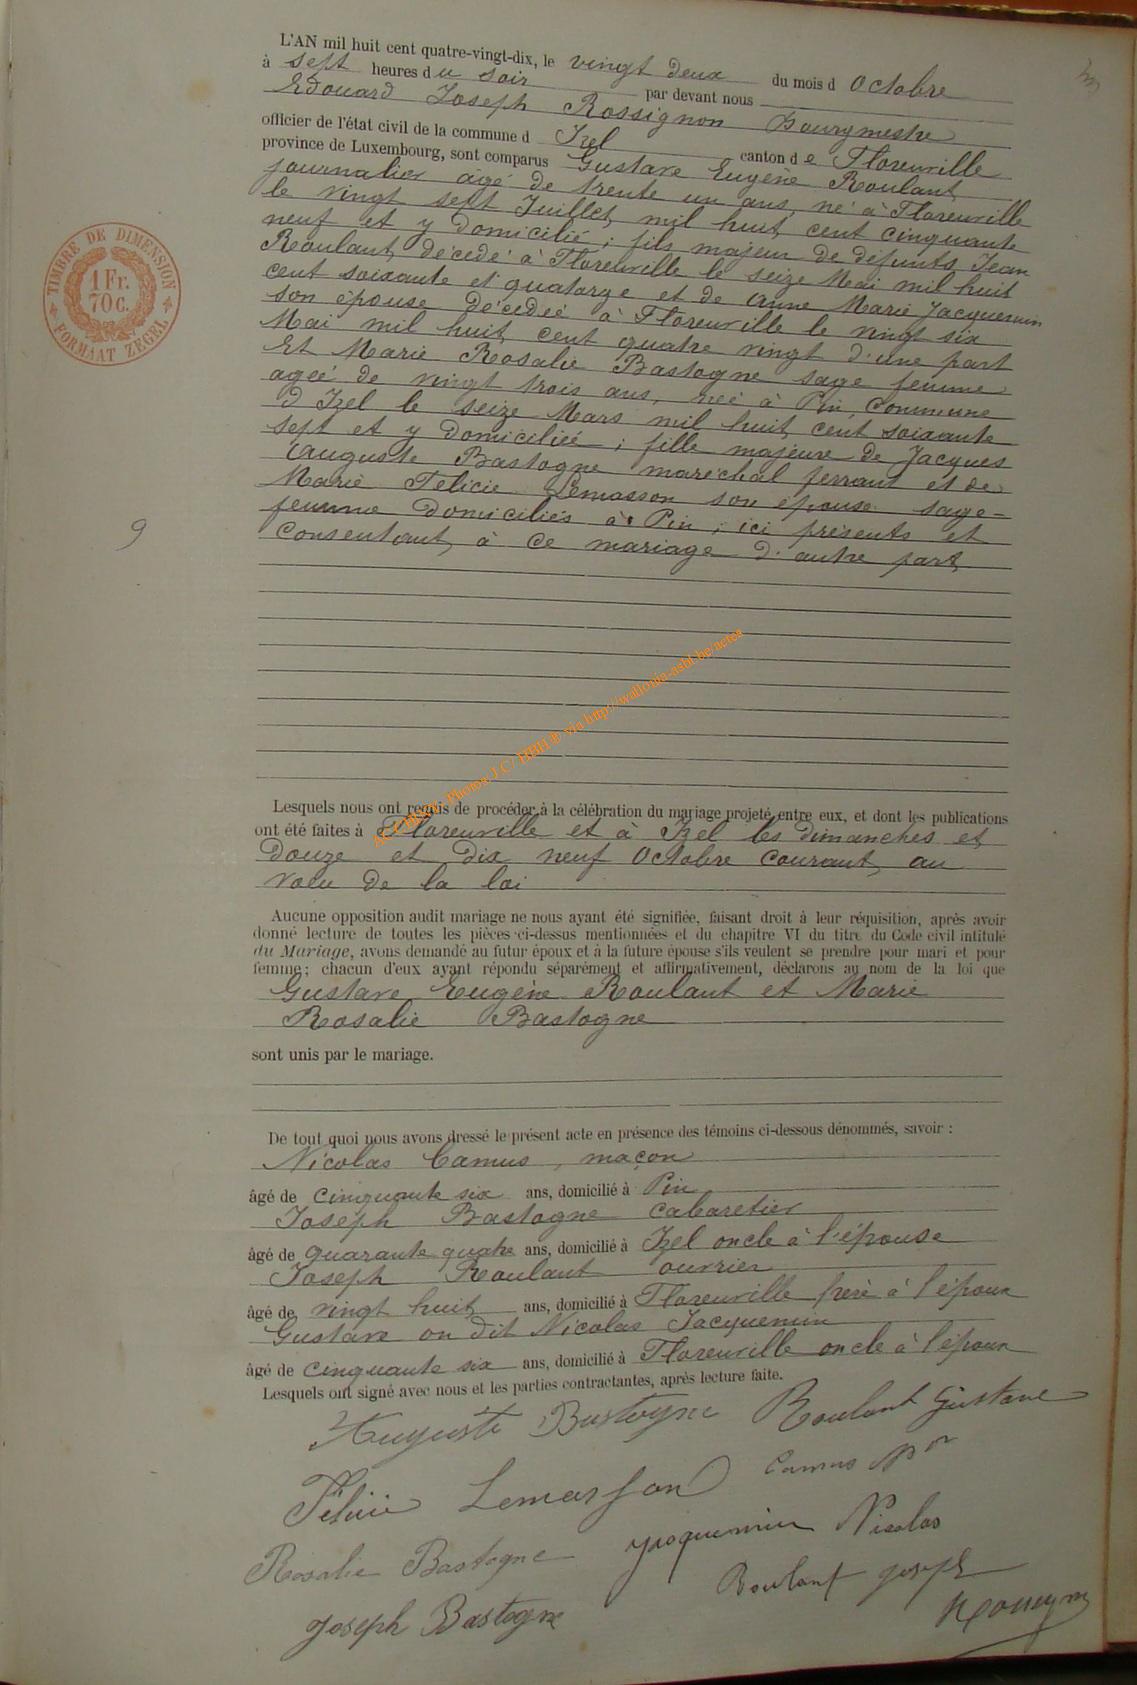 L'AN mil huit cent quatre-vingt-dix, le vingt deux du mois d Octobre
à sept heures du soir par devant nous
Edouard Joseph Rossignon Bourgmestre
officier de l'état civil de la commune d Izel canton de Florenville
province de Luxembourg, sont comparus Gustave Eugène Roulant
journalier âgé de trente un ans, né à Florenville
le vingt sept Juillet mil huit cent cinquante
neuf et y domicilié ; fils majeur de défunts Jean
Roulant décédé à Florenville le seize Mai mil huit
cent soixante et quatorze et de Anne Marie Jacquemin
son épouse décédée à Florenville le vingt six
Mai mil huit cent quatre vingt d'une part
Et Marie Rosalie Bastogne sage femme
agée de vingt trois ans, née à Pin, commune
d Izel le seize Mars mil huit cent soixante
sept et y domiciliée ; fille majeure de Jacques
Auguste Bastogne maréchal ferrant et de
Marie Félicie Lemasson son épouse sage-
femme domiciliés à Pin ; ici présents et
consentant à ce mariage d'autre part
9
TIMBRE DE DIMENSION
1 Fr.
70c.
FORMAAT ZEGEL
via http://wallonia-asbl.be/actes
Lesquels nous ont requis de procéder à la célébration du mariage projeté entre eux, et dont les publications
ont été faites à Florenville et à Izel les dimanches et
douze et dix neuf Octobre courant au
voeu de la loi
Aucune opposition audit mariage ne nous ayant été signifiée, faisant droit à leur réquisition, après avoir
donné lecture de toutes les pièces ci-dessus mentionnées et du chapitre VI du titre du Code civil intitulé
du Mariage, avons demandé au futur époux et à la future épouse s'ils veulent se prendre pour mari et pour
femme ; chacun d'eux ayant répondu séparément et affirmativement, déclarons au nom de la loi que
Gustave Eugène Roulant et Marie
Rosalie Bastogne
sont unis par le mariage.
De tout quoi nous avons dressé le présent acte en présence des témoins ci-dessous dénommés, savoir :
Nicolas Camus, maçon
âgé de cinquante six ans, domicilié à Pin
Joseph Bastogne cabaretier
âgé de quarante quatre ans, domicilié à Izel oncle à l'épouse
Joseph Roulant ouvrier
âgé de vingt huit ans, domicilié à Florenville frère à l'époux
Gustave ou dit Nicolas Jacquemin
âgé de cinquante six ans, domicilié à Florenville oncle à l'époux
Lesquels ont signé avec nous et les parties contractantes, après lecture faite.
Auguste Bastogne Roulant Gustave
Félicie Lemasson Camus
Rosalie Bastogne Jacquemin Nicolas
Joseph Bastogne Roulant Joseph